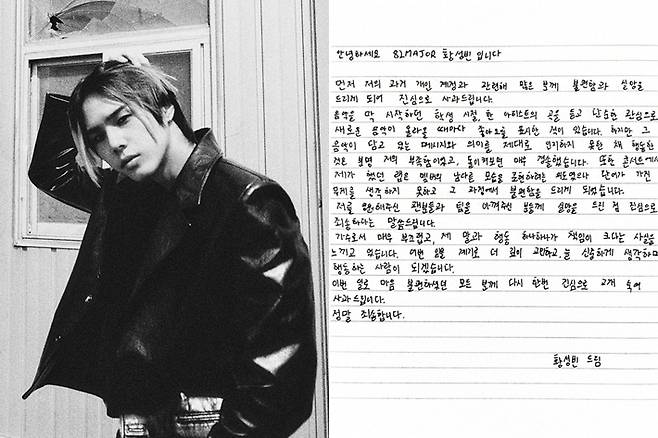 안녕하세요 82MAJOR 황성빈 입니다
먼저 저의 과거 개인 계정과 관련해 많은 분께 불편함과 실망을
드리게 되어 진심으로 사과드립니다.
음악을 막 시작하던 학생 시절, 한 아티스트의 곡을 듣고 단순한 관심으로
새로운 음악이 올라올 때마다 좋아요를 표시한 것이 있습니다. 하지만 그
음악이 담고 있는 메시지와 의미를 제대로 인지하지 못한 채 행동한
것은 분명 저의 부족함이었고, 돌이켜보면 매우 경솔했습니다. 또한 콘서트에서
제가 했던 랩은 멤버의 남다른 모습을 표현하려는 의도였으나 단어가 가진
무게를 생각하지 못하고 그 과정에서 불편함을 드리게 되었습니다.
저를 응원해주신 팬분들과 팀을 아껴주신 분들께 실망을 드린 점 진심으로
죄송하다는 말씀드립니다.
가수로서 매우 부족했고, 제 말과 행동 하나하나가 책임이 크다는 사실을
느끼고 있습니다. 이번 일을 계기로 더 깊이 고민하고, 늘 신중하게 생각하며
행동하는 사람이 되겠습니다.
이번 일로 마음 불편하셨던 모든 분께 다시 한번 진심으로 고개 숙여
사과드립니다.
정말 죄송합니다.
황성빈 드림